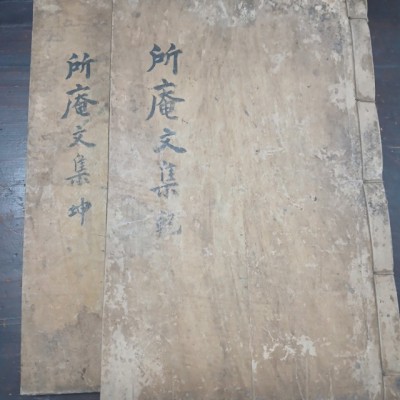 所庵文集乾
所庵文集坤